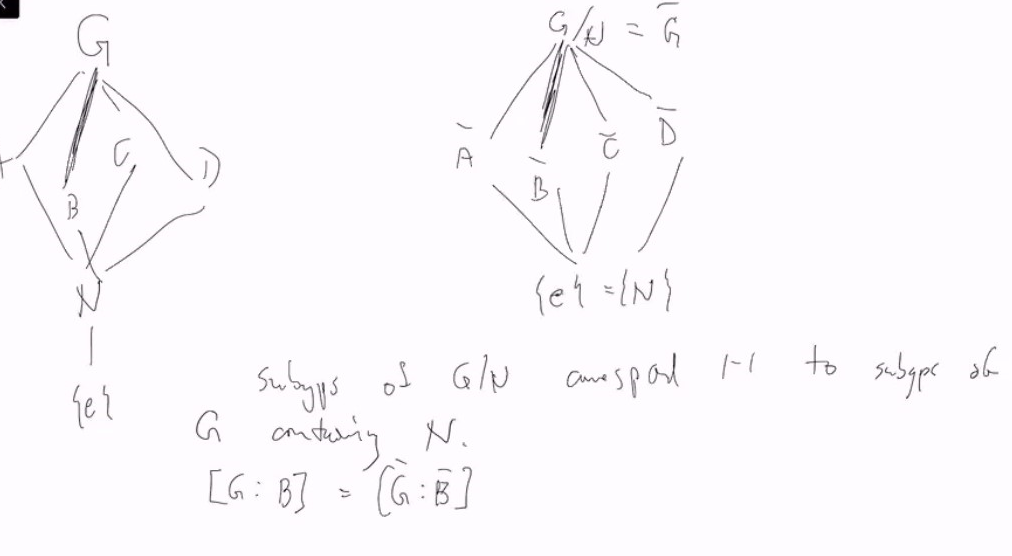 G
G/N = G̅
C
D
B
N
{e}
A̅
B̅
C̅
D̅
{e} = {N}
subgps of G/N correspond 1-1 to subgps of
G containing N.
[G : B] = [G̅ : B̅]